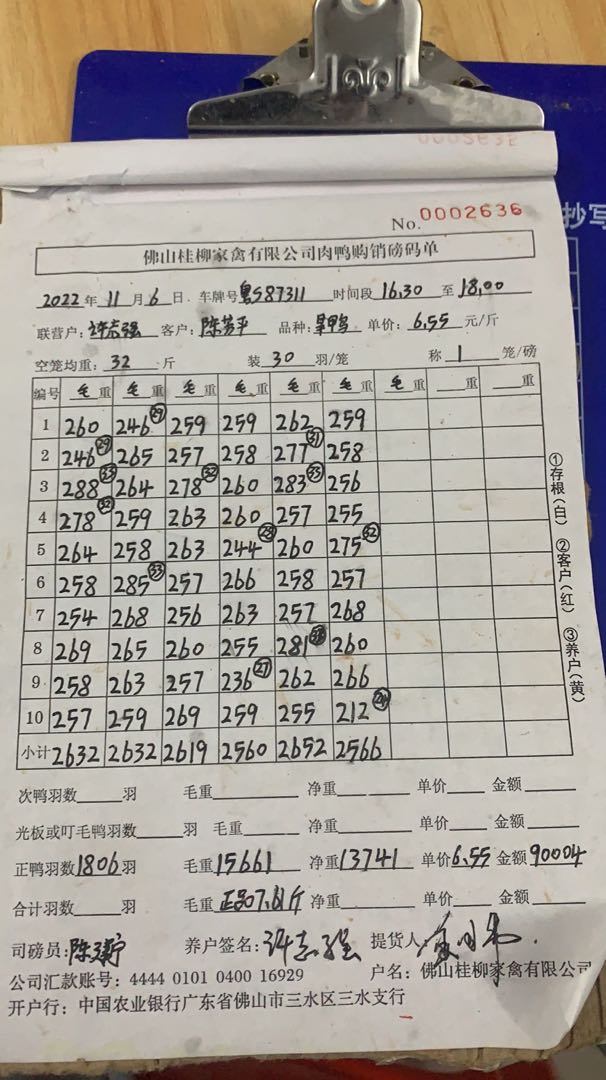 0002636
No. 0002636
抄写
佛山桂柳家禽有限公司肉鸭购销磅码单
2022年11月6日 车牌号粤S87311 时间段16.30至18.00
联营户:许志强 客户:陈芳平 品种: 单价:6.55元/斤
空笼均重:32斤 装30羽/笼 称1笼/磅
编号 毛重 毛重 毛重 毛重 毛重 毛重 毛重 重 重
1 260 246㉙ 259 259 262 259
2 246㉙ 265 257 258 277㉛ 258
3 288㉝ 264 278㉜ 260 283㉝ 256
4 278㉜ 259 263 260 257 255
5 264 258 263 244㉘ 260 275㉜
6 258 285㉝ 257 266 258 257
7 254 268 256 263 257 268
8 269 265 260 255 281 260
9 258 263 257 236㉗ 262 266
10 257 259 269 259 255 212㉔
小计 2632 2632 2619 2560 2652 2566
①存根(白) ②客户(红) ③养户(黄)
次鸭羽数 羽 毛重 净重 单价 金额
光板或叮毛鸭羽数 羽 毛重 净重 单价 金额
正鸭羽数1806羽 毛重15661 净重13741 单价6.55 金额90004
合计羽数 羽 毛重 7.61斤 净重 单价 金额
司磅员:陈 养户签名:许志强 提货人:
公司汇款账号:4444 0101 0400 16929 户名:佛山桂柳家禽有限公司
开户行:中国农业银行广东省佛山市三水区三水支行